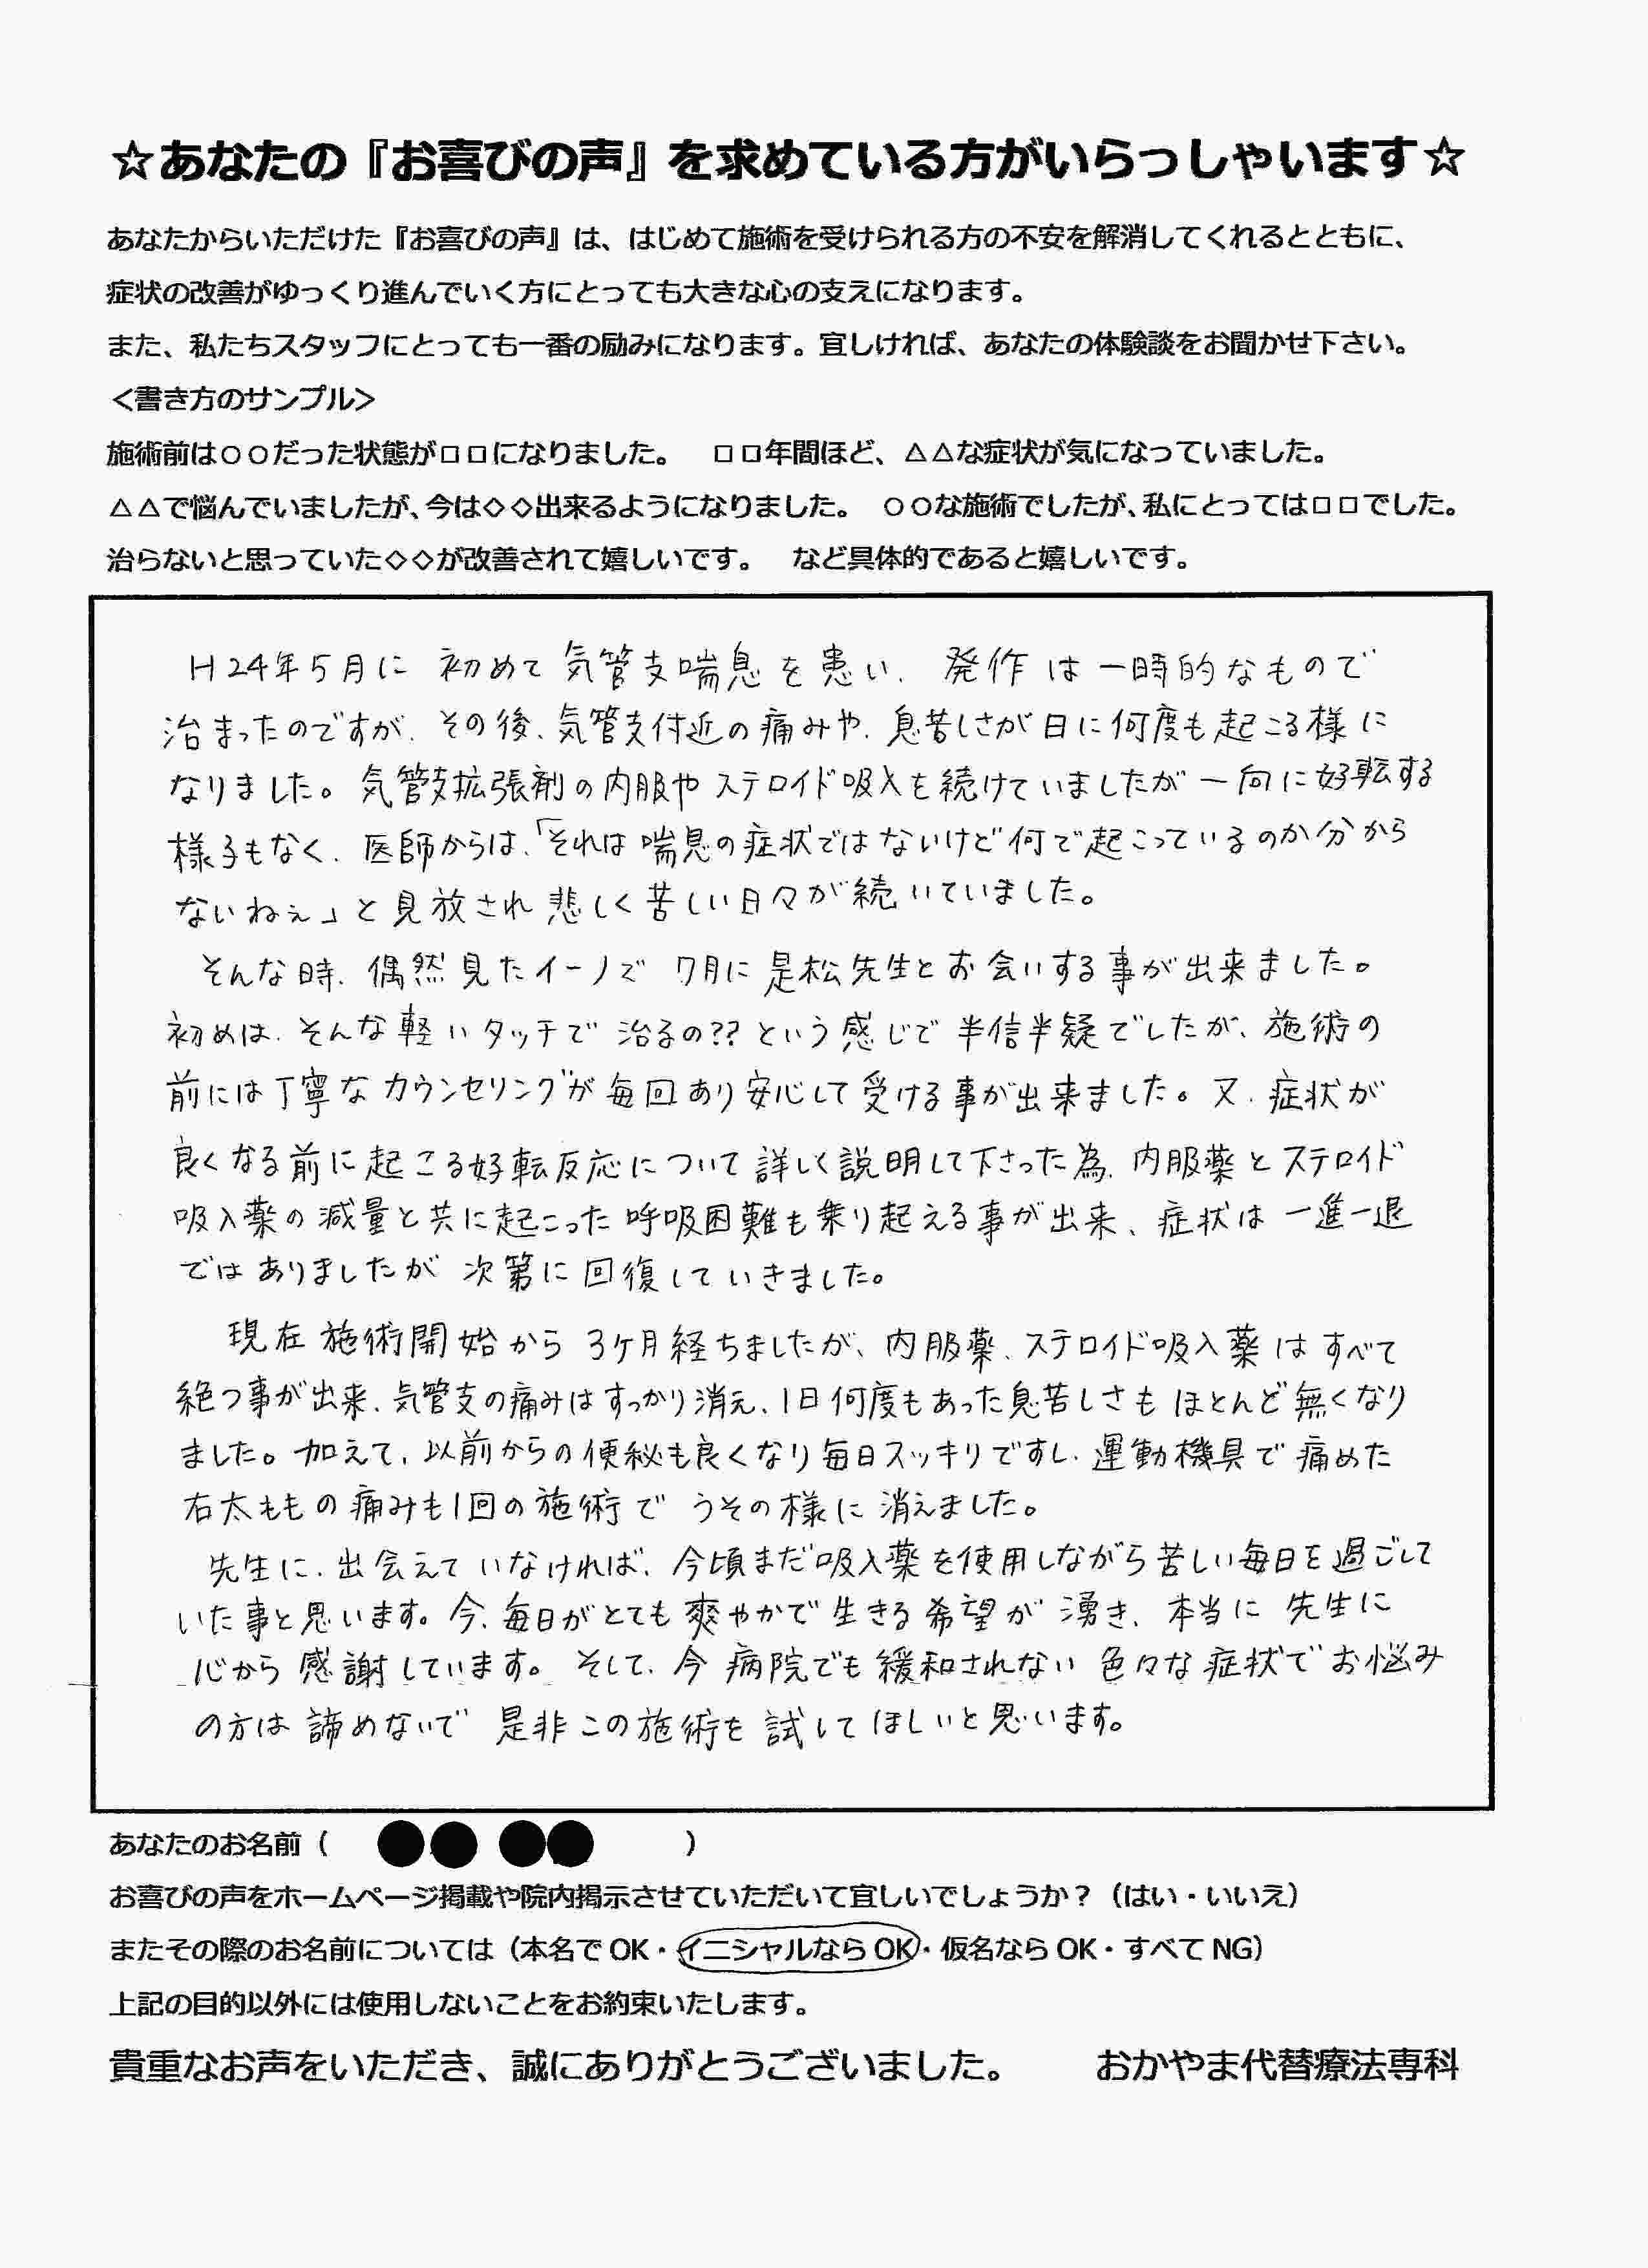 ☆あなたの『お喜びの声』を求めている方がいらっしゃいます☆
あなたからいただけた『お喜びの声』は、はじめて施術を受けられる方の不安を解消してくれるとともに、
症状の改善がゆっくり進んでいく方にとっても大きな心の支えになります。
また、私たちスタッフにとっても一番の励みになります。宜しければ、あなたの体験談をお聞かせ下さい。
＜書き方のサンプル＞
施術前は○○だった状態が□□になりました。　□□年間ほど、△△な症状が気になっていました。
△△で悩んでいましたが、今は◇◇出来るようになりました。　○○な施術でしたが、私にとっては□□でした。
治らないと思っていた◇◇が改善されて嬉しいです。　など具体的であると嬉しいです。
H24年5月に 初めて 気管支喘息を患い、発作は一時的なもので
治まったのですが、その後、気管支付近の痛みや、息苦しさが日に何度も起こる様に
なりました。気管支拡張剤の内服やステロイド吸入を続けていましたが一向に好転する
様子もなく、医師からは、「それは喘息の症状ではないけど何で起こっているのか分から
ないねぇ」と見放され悲しく苦しい日々が続いていました。
そんな時、偶然見たイーノで 7月に是松先生とお会いする事が出来ました。
初めは、そんな軽いタッチで治るの??という感じで半信半疑でしたが、施術の
前には丁寧なカウンセリングが毎回あり安心して受ける事が出来ました。又、症状が
良くなる前に起こる好転反応について詳しく説明して下さった為、内服薬とステロイド
吸入薬の減量と共に起こった呼吸困難も乗り起える事が出来、症状は一進一退
ではありましたが次第に回復していきました。
現在施術開始から3ケ月経ちましたが、内服薬、ステロイド吸入薬はすべて
絶つ事が出来、気管支の痛みはすっかり消え、1日何度もあった息苦しさもほとんど無くなり
ました。加えて、以前からの便秘も良くなり毎日スッキリですし、運動機具で痛めた
右太ももの痛みも1回の施術で うその様に消えました。
先生に、出会えていなければ、今頃まだ吸入薬を使用しながら苦しい毎日を過ごして
いた事と思います。今、毎日がとても爽やかで生きる希望が湧き、本当に先生に
心から感謝しています。そして、今病院でも緩和されない色々な症状でお悩み
の方は諦めないで是非この施術を試してほしいと思います。
あなたのお名前（　　　　）
お喜びの声をホームページ掲載や院内掲示させていただいて宜しいでしょうか？（はい・いいえ）
またその際のお名前については（本名でOK・イニシャルならOK・仮名ならOK・すべてNG）
上記の目的以外には使用しないことをお約束いたします。
貴重なお声をいただき、誠にありがとうございました。　　おかやま代替療法専科